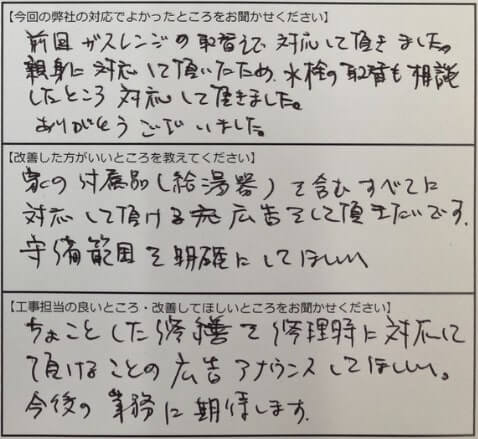 【今回の弊社の対応でよかったところをお聞かせください】
前回ガスレンジの取替えで対応して頂きました。
親身に対応して頂いたため、水栓の取替も相談
したところ対応して頂きました。
ありがとうございました。
【改善した方がいいところを教えてください】
家の付属品(給湯器)を含むすべてに
対応して頂ける旨広告をして頂きたいです。
守備範囲を明確にしてほしい
【工事担当の良いところ・改善してほしいところをお聞かせください】
ちょことした修繕を修理時に対応して
頂けることの広告アナウンスしてほしい。
今後の業務に期待します。